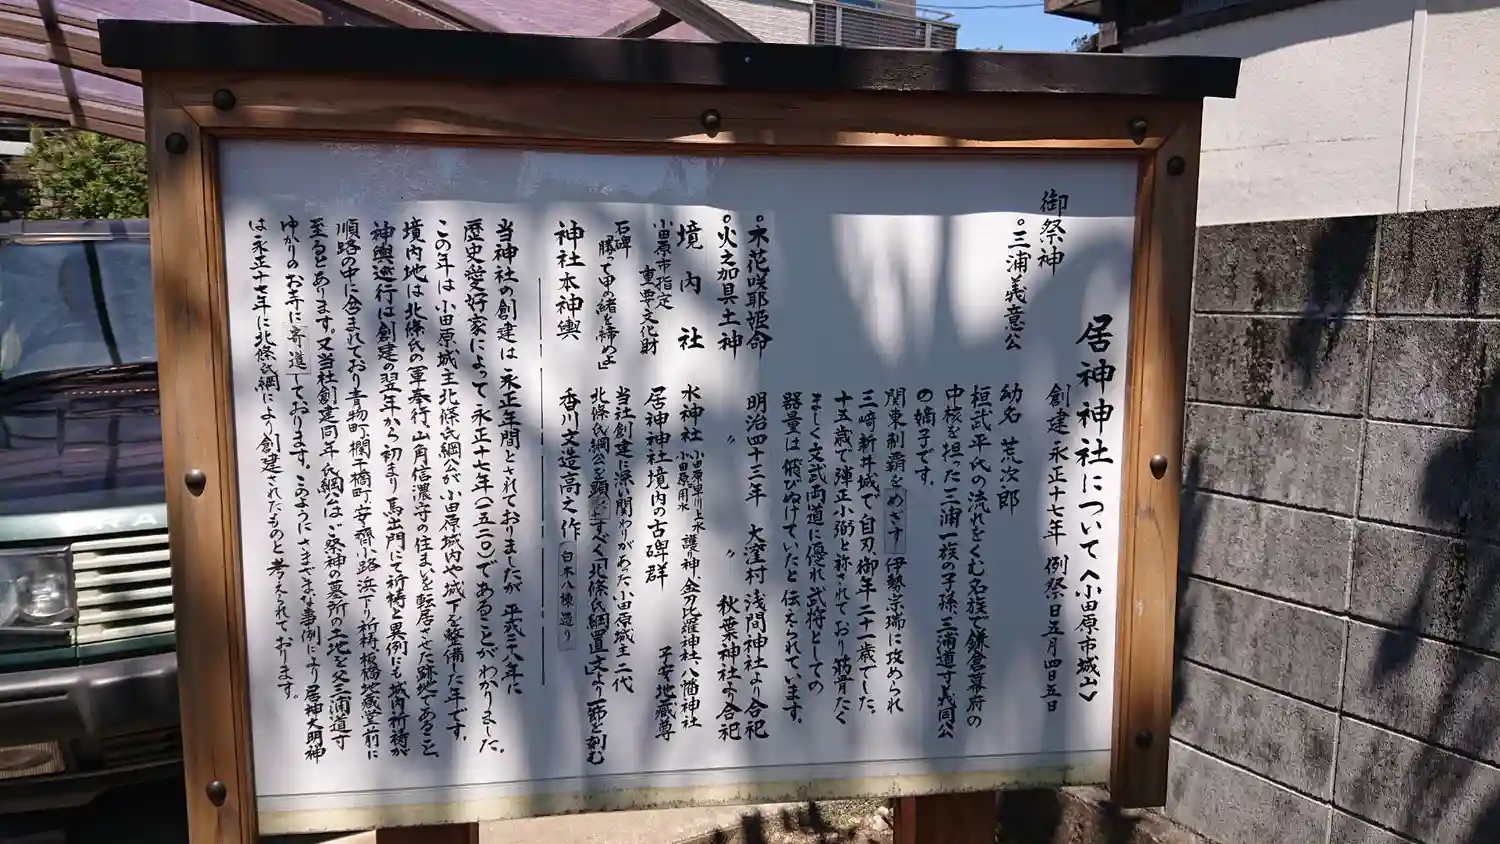 居神神社について(小田原市城山)
創建 永正十七年 例祭日五月四日五日
御祭神
○三浦義意公
幼名 荒次郎
桓武平氏の流れをくむ名族で鎌倉幕府の
中核を担った三浦一族の子孫三浦道寸義同公
の嫡子です。
関東制覇をめざす伊勢宗瑞に攻められ
三崎新井城で自刃、御年二十一歳でした。
十五歳で弾正小弼と称されており筋骨たく
ましく文武両道に優れ武将としての
器量は飛びぬけていたと伝えられています。
○木花咲耶姫命 明治四十三年 大窪村浅間神社より合祀
○火之加具土神 〃 〃 秋葉神社より合祀
境内社 水神社 小田原早川上水
小田原用水 護り神、金刀比羅神社、八幡神社
子安地蔵尊
小田原市指定
重要文化財 居神神社境内の古碑群
石碑
勝って甲の緒を締めよ
当社創建に深い関わりがあった小田原城主二代
北條氏綱公を顕すべく「北條氏綱置文」より一節を刻む
神社本神輿 香川文造高之作 白木八棟造り
当神社の創建は永正年間とされておりましたが平成二十八年に
歴史愛好家によって、永正十七年(一五二〇)であることがわかりました。
この年は小田原城主北條氏綱公が小田原城内や城下を整備した年です。
境内地は北條氏の軍奉行、山角信濃守の住まいを転居させた跡地であること、
神輿巡行は創建の翌年から初まり馬出門にて祈祷と異例にも城内祈祷が
順路の中に含まれており青物町、欄干橋町、安斎小路、浜下り祈祷、板橋地蔵堂前に
至るとあります。又当社創建同年氏綱公はご祭神の墓所の土地を父三浦道寸
ゆかりのお寺に寄進しております。このようにさまざまな事例により居神大明神
は永正十七年に北條氏綱により創建されたものと考えられております。